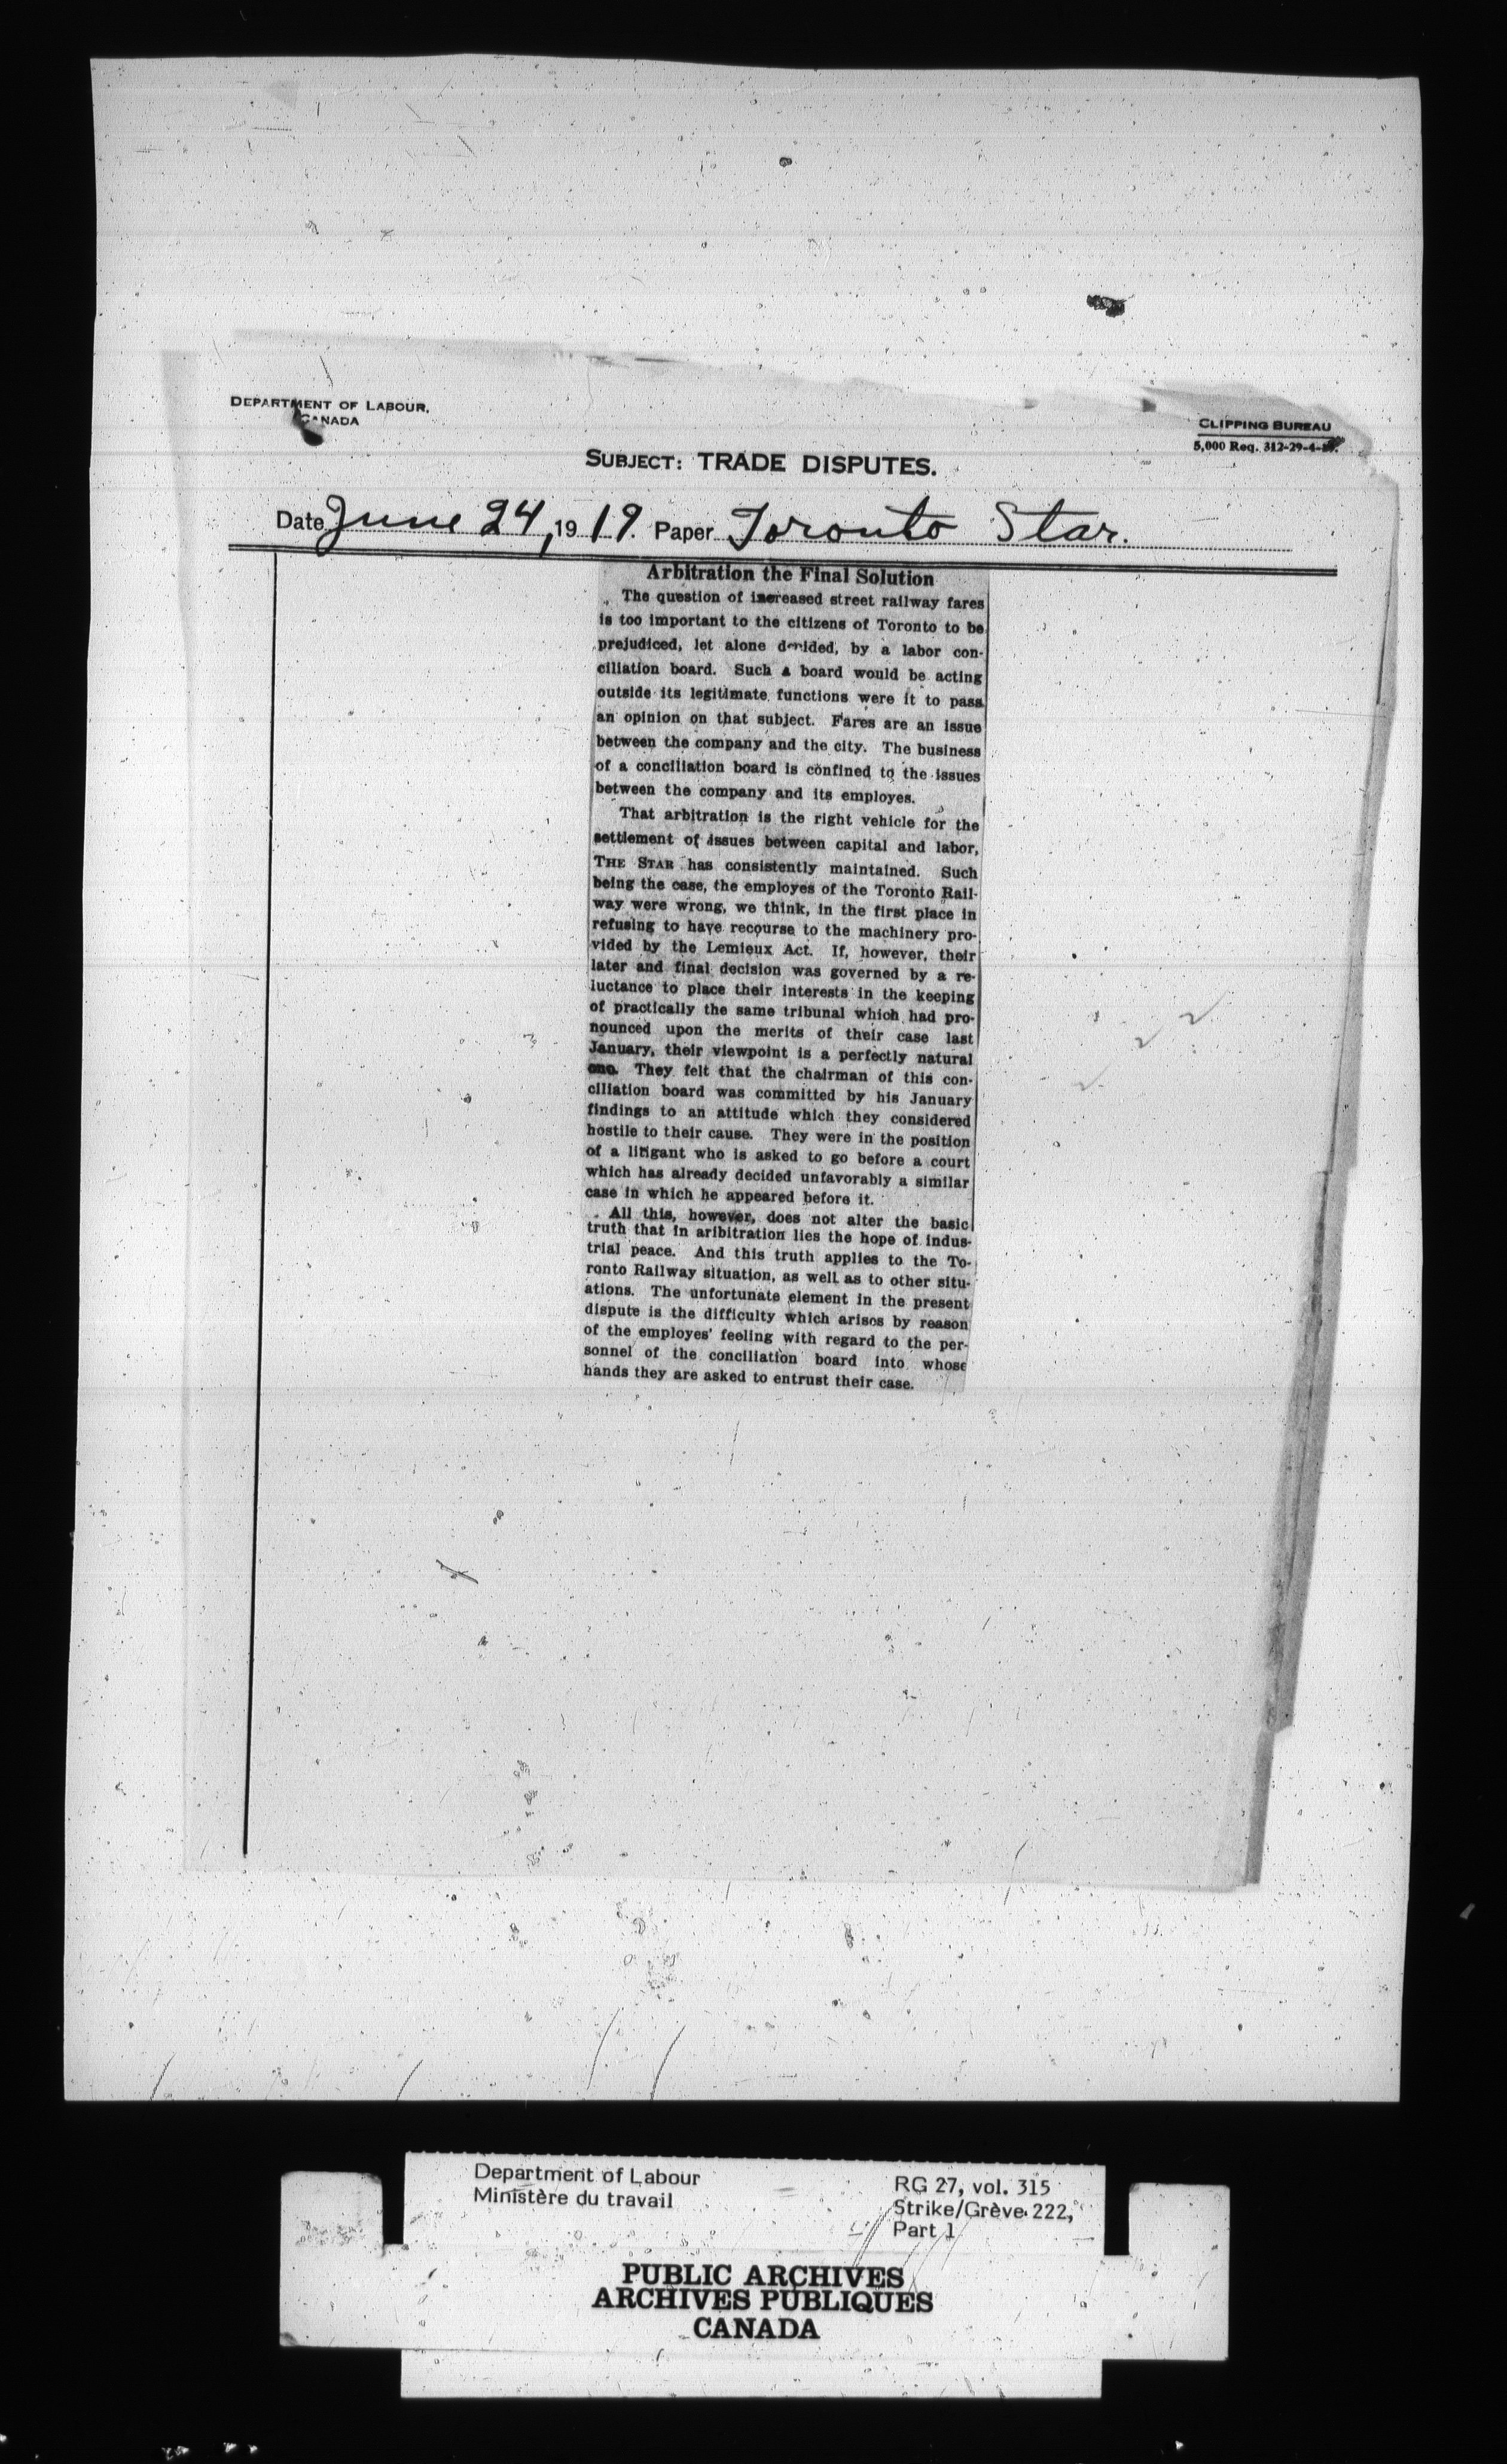 DEPARTMENT OF LABOUR,
CANADA
CLIPPING BUREAU
5,000 Req. 312-29-4-
SUBJECT: TRADE DISPUTES.
Date June 24, 1919. Paper Toronto Star.
Arbitration the Final Solution
The question of increased street railway fares
is too important to the citizens of Toronto to be
prejudiced, let alone decided, by a labor con-
ciliation board. Such a board would be acting
outside its legitimate functions were it to pass
an opinion on that subject. Fares are an issue
between the company and the city. The business
of a conciliation board is confined to the issues
between the company and its employes.
That arbitration is the right vehicle for the
settlement of issues between capital and labor,
THE STAR has consistently maintained. Such
being the case, the employes of the Toronto Rail-
way were wrong, we think, in the first place in
refusing to have recourse to the machinery pro-
vided by the Lemieux Act. If, however, their
later and final decision was governed by a re-
luctance to place their interests in the keeping
of practically the same tribunal which had pro-
nounced upon the merits of their case last
January, their viewpoint is a perfectly natural
one. They felt that the chairman of this con-
ciliation board was committed by his January
findings to an attitude which they considered
hostile to their cause. They were in the position
of a litigant who is asked to go before a court
which has already decided unfavorably a similar
case in which he appeared before it.
All this, however, does not alter the basic
truth that in aribitration lies the hope of indus-
trial peace. And this truth applies to the To-
ronto Railway situation, as well as to other situ-
ations. The unfortunate element in the present
dispute is the difficulty which arises by reason
of the employes' feeling with regard to the per-
sonnel of the conciliation board into whose
hands they are asked to entrust their case.
Department of Labour
Ministère du travail
RG 27, vol. 315
Strike/Grève 222,
Part 1
PUBLIC ARCHIVES
ARCHIVES PUBLIQUES
CANADA